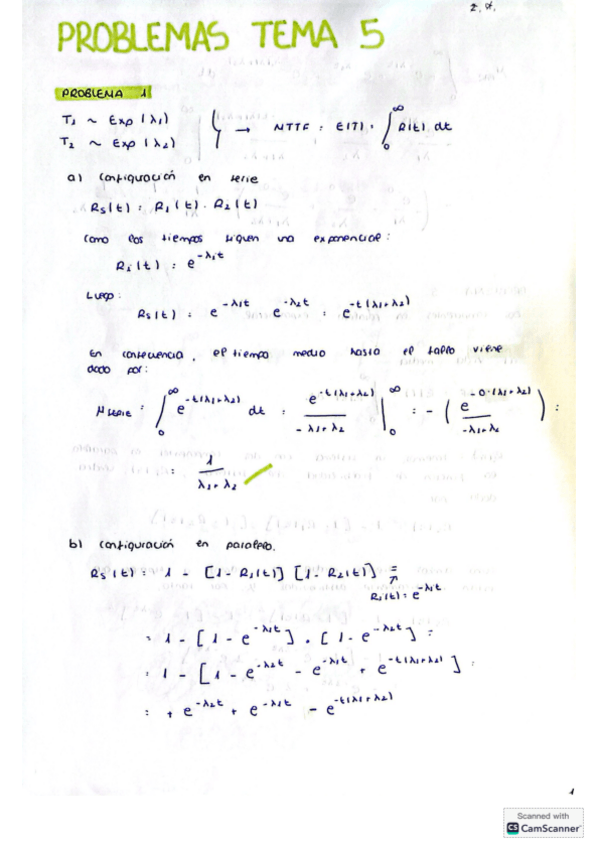 2.4.
PROBLEMAS TEMA 5
PROBLEMA 1
T₁ ~ Exp (λ₁)
T₂ ~ Exp (λ₂)
→ MTTF = E(T) = ∫₀^∞ R(t) dt
a) Configuración en serie
Rs(t) = R₁(t) · R₂(t)
Como los tiempos siguen una exponencial:
Ri(t) = e^(-λit)
Luego:
Rs(t) = e^(-λ₁t) e^(-λ₂t) = e^(-t(λ₁+λ₂))
En consecuencia, el tiempo medio hasta el fallo viene
dado por:
μserie = ∫₀^∞ e^(-t(λ₁+λ₂)) dt = e^(-t(λ₁+λ₂)) / (-λ₁+λ₂) |₀^∞ = - ( e^(-0·(λ₁+λ₂)) / (-λ₁+λ₂) ) =
= 1 / (λ₁+λ₂)
b) Configuración en paralelo.
Rs(t) = 1 - [1 - R₁(t)] [1 - R₂(t)] =
↑
Ri(t) = e^(-λit)
= 1 - [1 - e^(-λ₁t)] · [1 - e^(-λ₂t)] =
= 1 - [1 - e^(-λ₂t) - e^(-λ₁t) + e^(-t(λ₁+λ₂))] =
= + e^(-λ₂t) + e^(-λ₁t) - e^(-t(λ₁+λ₂))
1
Scanned with
CS CamScanner